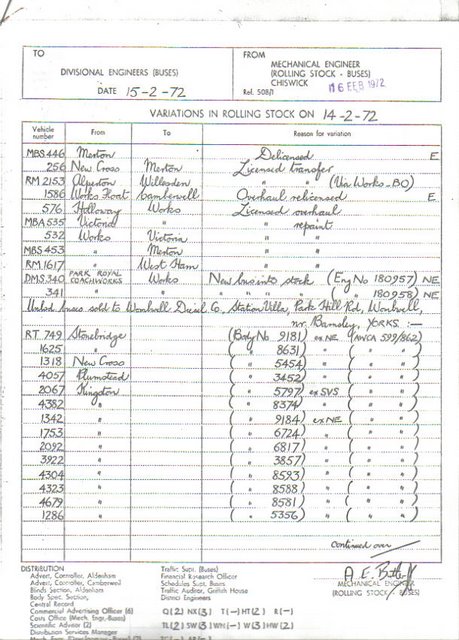 TO
DIVISIONAL ENGINEERS (BUSES)
DATE 15-2-72
FROM
MECHANICAL ENGINEER
(ROLLING STOCK - BUSES)
CHISWICK
Ref. 508/1
16 FEB 1972
VARIATIONS IN ROLLING STOCK ON 14-2-72
Vehicle number From To Reason for variation
MBS 446 Merton Delicensed E
256 New Cross Merton Licensed transfer
RM 2153 Alperton Willesden " " (Via Works - BO)
1586 Works Float Camberwell Overhaul relicensed E
576 Holloway Works Licensed overhaul
MBA 535 Victoria " " repaint
532 Works Victoria " "
MBS 453 " Merton " "
RM 1617 " West Ham " "
DMS 340 PARK ROYAL COACHWORKS Works New bus into stock (Eng No 180957) NE
341 " " " ( " 180958) NE
Unlicd. buses sold to Wombwell Diesel Co., Station Villa, Park Hill Rd, Wombwell,
nr. Barnsley, YORKS :—
RT 749 Stonebridge (Body No 9181) ex NE (AWCA 599/862)
1625 " ( " 8631) " ( " " )
1318 New Cross ( " 5454) " ( " " )
4057 Plumstead ( " 3452) " ( " " )
2067 Kingston ( " 5797) ex SVS ( " " )
4382 " ( " 8374) " ( " " )
1342 " ( " 9184) ex NE ( " " )
1753 " ( " 6724) " ( " " )
2092 " ( " 6817) " ( " " )
3922 " ( " 3857) " ( " " )
4304 " ( " 8593) " ( " " )
4323 " ( " 8588) " ( " " )
4679 " ( " 8581) " ( " " )
1286 " ( " 5356) " ( " " )
continued over
DISTRIBUTION
Advert. Controller, Aldenham
Advert. Controller, Camberwell
Blinds Section, Aldenham
Body Spec. Section,
Central Record
Commercial Advertising Officer (6)
Costs Office (Mech. Engr.-Buses)
Scientific Advisor (2)
Distribution Services Manager
Traffic Supt. (Buses)
Financial Research Officer
Schedules Supt. Buses
Traffic Auditor, Griffith House
District Engineers
Q(2) NX(3) T(-) HT(2) R(-)
TL(2) SW(3) WH(-) W(3) HW(2)
A. E. Butler
MECHANICAL ENGINEER
(ROLLING STOCK - BUSES)